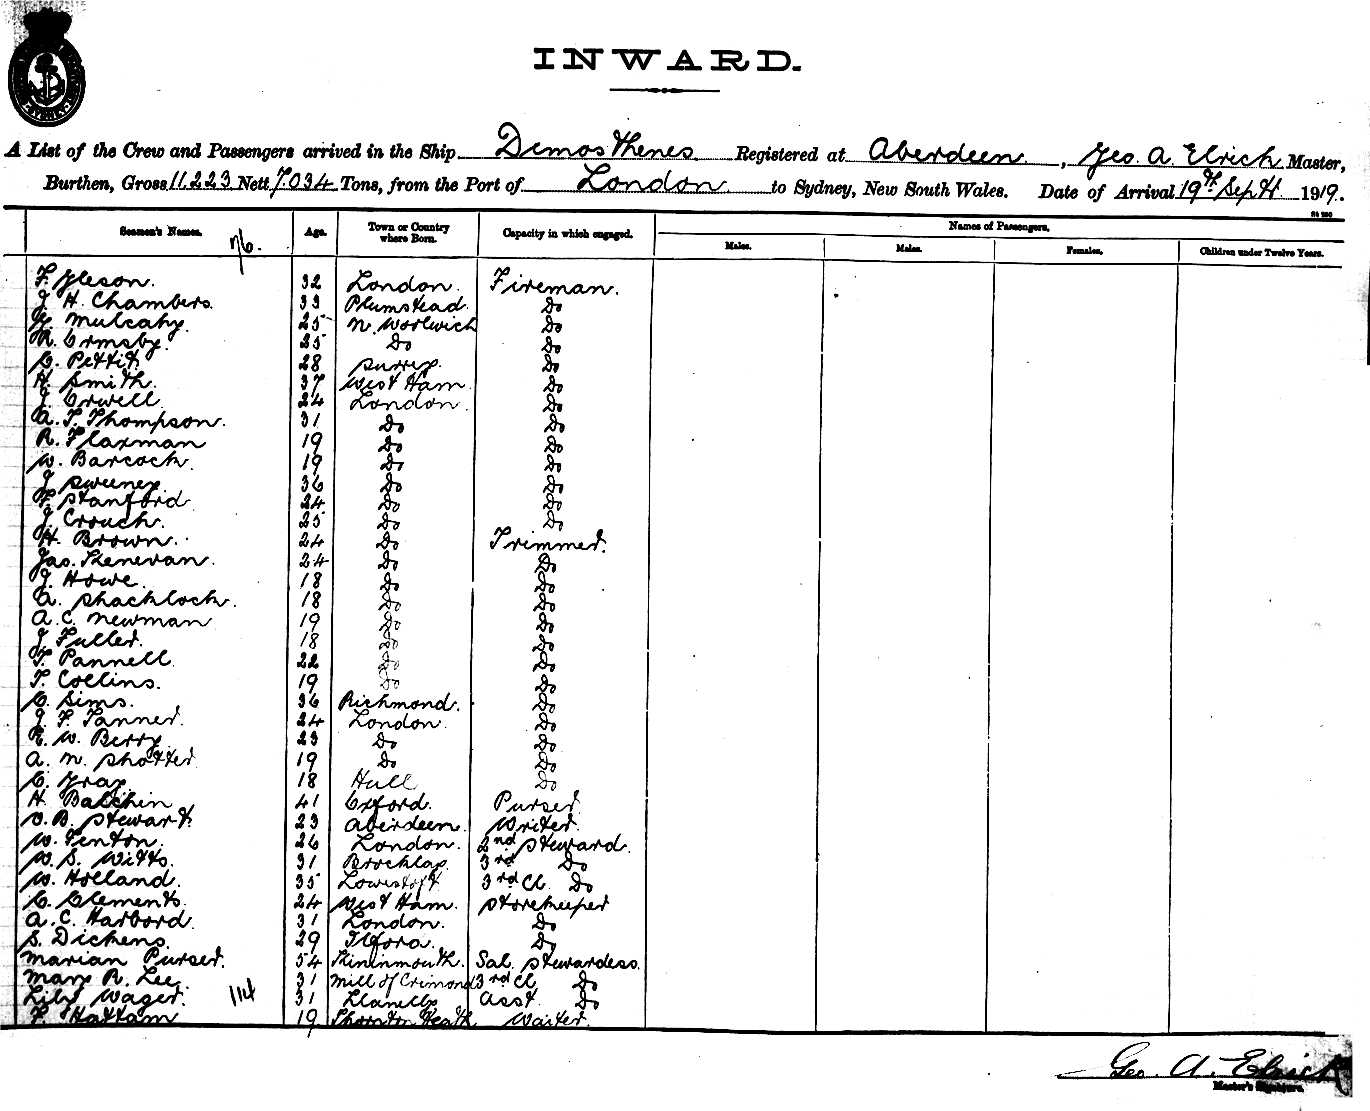 SYDNEY
INWARD.
A List of the Crew and Passengers arrived in the Ship Demosthenes Registered at Aberdeen, Geo. A. Elrick Master,
Burthen, Gross 11.223 Nett 7.034 Tons, from the Port of London to Sydney, New South Wales. Date of Arrival 19th Sept 1919.
Seamen's Names. 76. Age. Town or Country where Born. Capacity in which engaged. Names of Passengers.
Males. Males. Females. Children under Twelve Years.
F. Gleson. 32 London. Fireman.
J H. Chambers. 33 Plumstead. Do
G. Mulcahy. 25 N. Woolwich Do
R. Ormsby. 25 Do Do
C. Pettit. 28 Surrey. Do
H. Smith. 37 West Ham. Do
J. Orwell. 24 London. Do
A. T. Thompson. 31 Do Do
R. Flaxman 19 Do Do
W. Barcock. 19 Do Do
J Sweeney. 36 Do Do
F. Stanford 24 Do Do
J. Crouch. 25 Do Do
H. Brown. 24 Do Trimmer.
Jas. 24 Do Do
J. Howe. 18 Do Do
A. Shacklock. 18 Do Do
A. C. Newman 19 Do Do
J Fuller. 18 Do Do
T. Pannell. 22 Do Do
T. Collins. 19 Do Do
C. Sims. 36 Richmond. Do
J. F. Tanner. 24 London. Do
E. W. Berry. 23 Do Do
A. M. Shotter. 19 Do Do
C. Gray 18 Hull Do
H. Balchin 41 Oxford. Purser.
O. B. Stewart. 23 Aberdeen. Writer.
W. Fenton. 26 London. 2nd Steward.
W. S. Witts. 31 Brockley 3rd Do
W. Holland. 35 Lowestoft 3rd Cl. Do
C. Clements. 24 West Ham. Storekeeper
A. C. Harbord. 31 London. Do
S. Dickens. 29 Ilford. Do
Marian Purser. 54 Kininmouth. Sal. Stewardess.
Mary R. Lee 31 Mill of Crimond 3rd Cl Do
Lily Wager. 114 31 Llanelly Asst. Do
F. Hattam 19 Thornton Heath Waiter.
Geo. A. Elrick
Master's Signature.